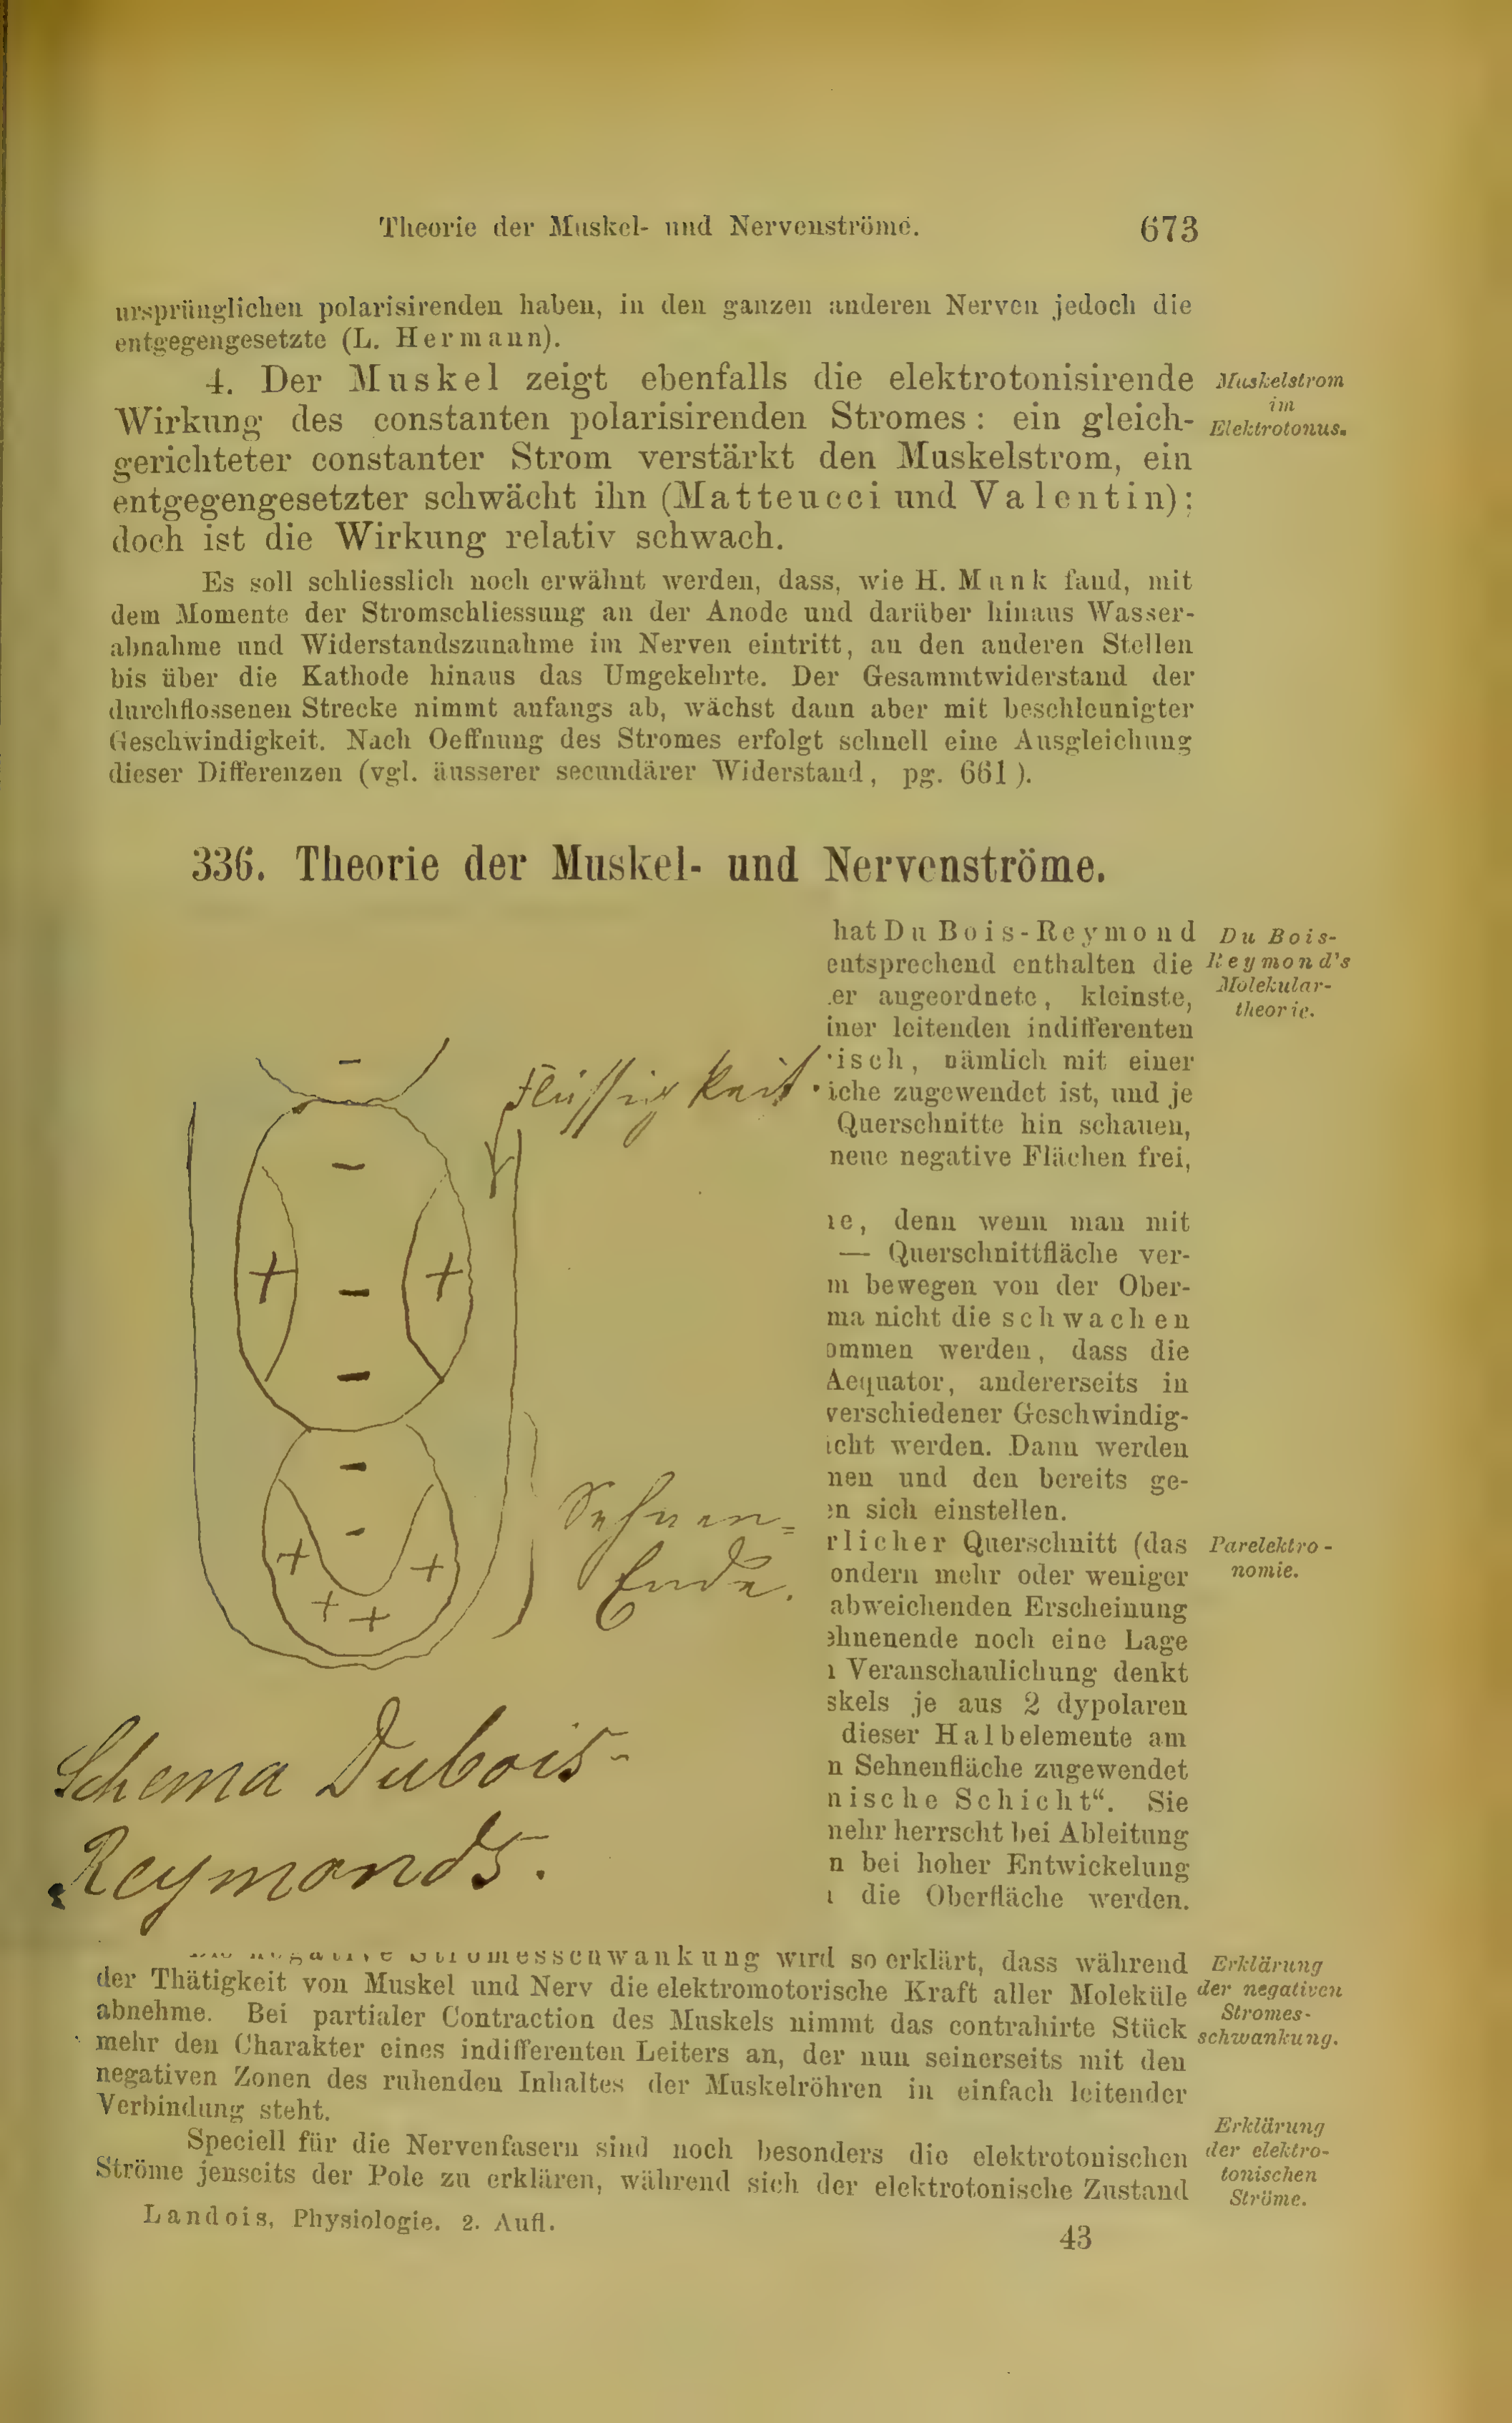 Theorie der Muskel- und Nervenströme. 673
ursprünglichen polarisirenden haben, in den ganzen anderen Nerven jedoch die
entgegengesetzte (L. Hermann).
4. Der Muskel zeigt ebenfalls die elektrotonisirende
Wirkung des constanten polarisirenden Stromes: ein gleich-
gerichteter constanter Strom verstärkt den Muskelstrom, ein
entgegengesetzter schwächt ihn (Matteucci und Valentin);
doch ist die Wirkung relativ schwach.
Muskelstrom
im
Elektrotonus.
Es soll schliesslich noch erwähnt werden, dass, wie H. Munk fand, mit
dem Momente der Stromschliessung an der Anode und darüber hinaus Wasser-
abnahme und Widerstandszunahme im Nerven eintritt, an den anderen Stellen
bis über die Kathode hinaus das Umgekehrte. Der Gesammtwiderstand der
durchflossenen Strecke nimmt anfangs ab, wächst dann aber mit beschleunigter
Geschwindigkeit. Nach Oeffnung des Stromes erfolgt schnell eine Ausgleichung
dieser Differenzen (vgl. äusserer secundärer Widerstand, pg. 661).
336. Theorie der Muskel- und Nervenströme.
hat Du Bois-Reymond
entsprechend enthalten die
er angeordnete, kleinste,
iner leitenden indifferenten
isch, nämlich mit einer
iche zugewendet ist, und je
Querschnitte hin schauen,
neue negative Flächen frei,
ie, denn wenn man mit
— Querschnittfläche ver-
m bewegen von der Ober-
ma nicht die schwachen
ommen werden, dass die
Aequator, andererseits in
verschiedener Geschwindig-
icht werden. Dann werden
nen und den bereits ge-
en sich einstellen.
rlicher Querschnitt (das
ondern mehr oder weniger
abweichenden Erscheinung
ehnenende noch eine Lage
n Veranschaulichung denkt
skels je aus 2 dypolaren
dieser Halbelemente am
n Sehnenfläche zugewendet
nische Schicht“. Sie
mehr herrscht bei Ableitung
n bei hoher Entwickelung
die Oberfläche werden.
Du Bois-
Reymond's
Molekular-
theorie.
Parelektro-
nomie.
Flüssigkeit
−
−
+ − +
−
−
−
+ +
+ +
Sehnen=
Ende.
Schema Dubois-
Reymonds.
negative Stromesschwankung wird so erklärt, dass während
der Thätigkeit von Muskel und Nerv die elektromotorische Kraft aller Moleküle
abnehme. Bei partialer Contraction des Muskels nimmt das contrahirte Stück
mehr den Charakter eines indifferenten Leiters an, der nun seinerseits mit den
negativen Zonen des ruhenden Inhaltes der Muskelröhren in einfach leitender
Verbindung steht.
Erklärung
der negativen
Stromes-
schwankung.
Speciell für die Nervenfasern sind noch besonders die elektrotonischen
Ströme jenseits der Pole zu erklären, während sich der elektrotonische Zustand
Erklärung
der elektro-
tonischen
Ströme.
Landois, Physiologie. 2. Aufl.
43